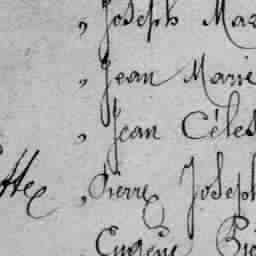 , Joseph Mar
, Jean Marie
, Jean Céles
, Pierre Joseph
Eugène